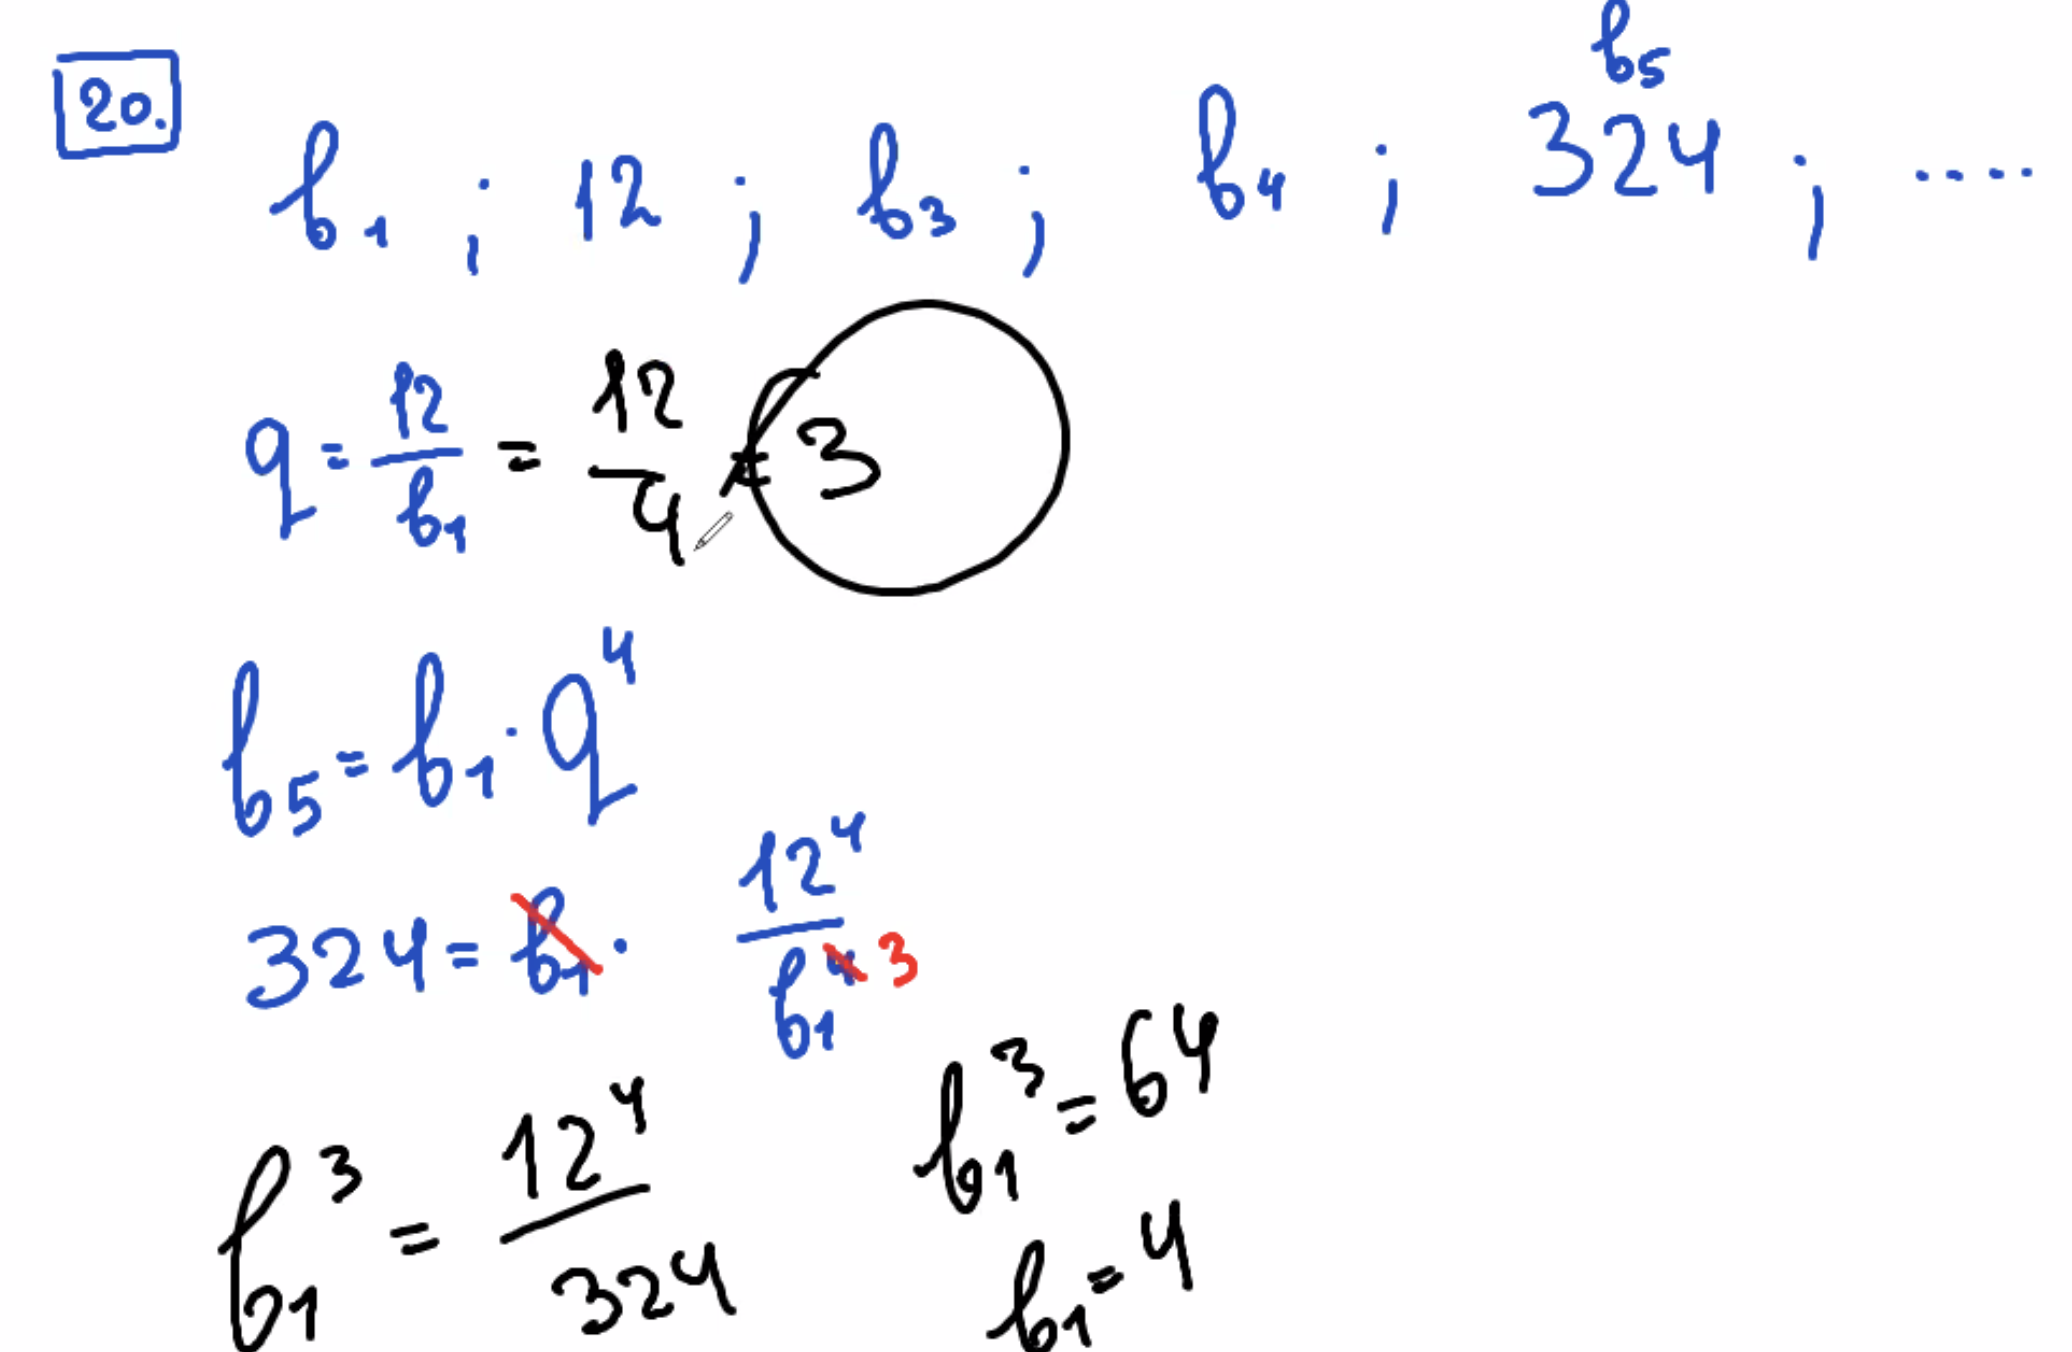 20.
b₅
b₁ ; 12 ; b₃ ; b₄ ; 324 ; ....
q = 12/b₁ = 12/4 = 3
b₅ = b₁ · q⁴
324 = b₁ · 12⁴/b₁⁴ 3
b₁³ = 12⁴/324
b₁³ = 64
b₁ = 4